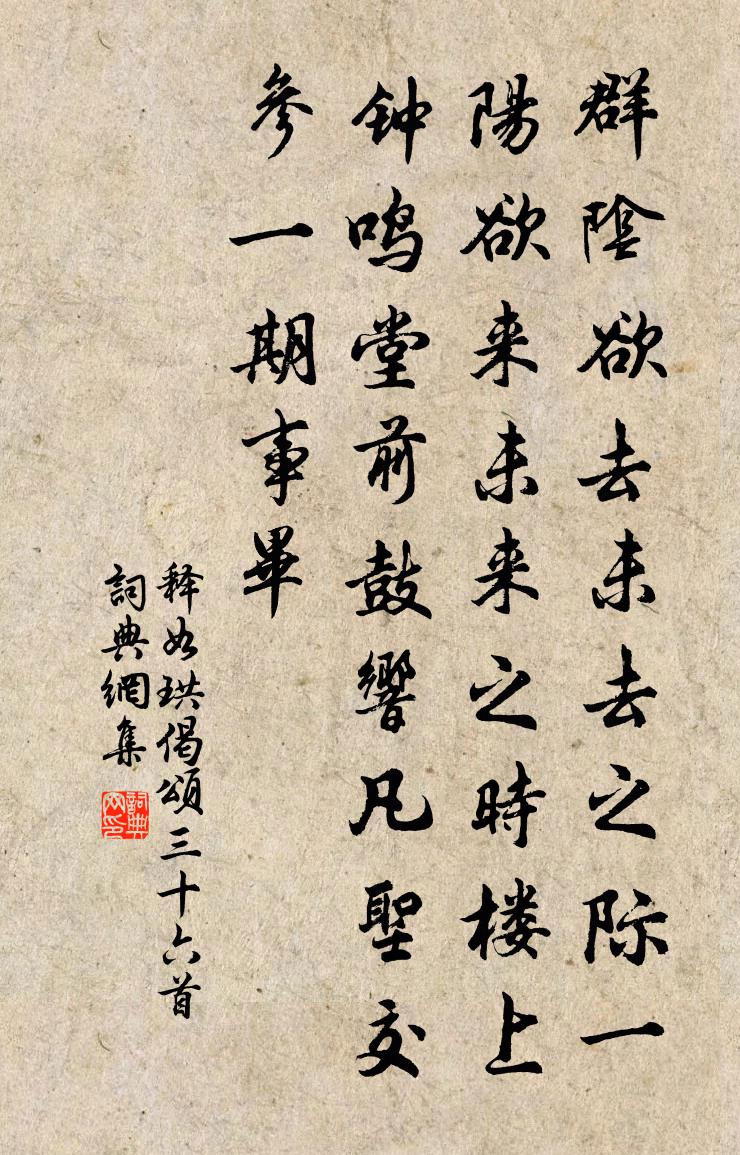 群陰欲去未去之际一
陽欲来未来之時楼上
钟鸣堂前鼓響凡聖交
參一期事畢
释如珙偈頌三十六首
詞典網集
詞典网印